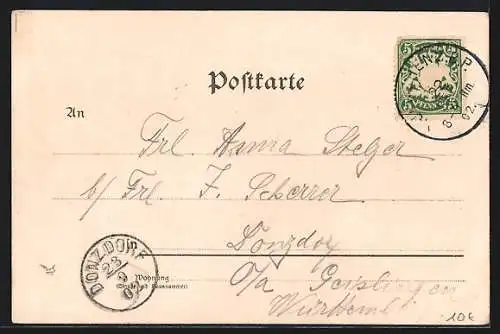 5
PFENNIG
Postkarte
An
Frl. Anna Steger
b/ Frl. F. Scherrer
Donzdorf
O/A Geislingen
Württembg.
Wohnung
(Straße und Hausnummer)
DONZDORF
23
10€